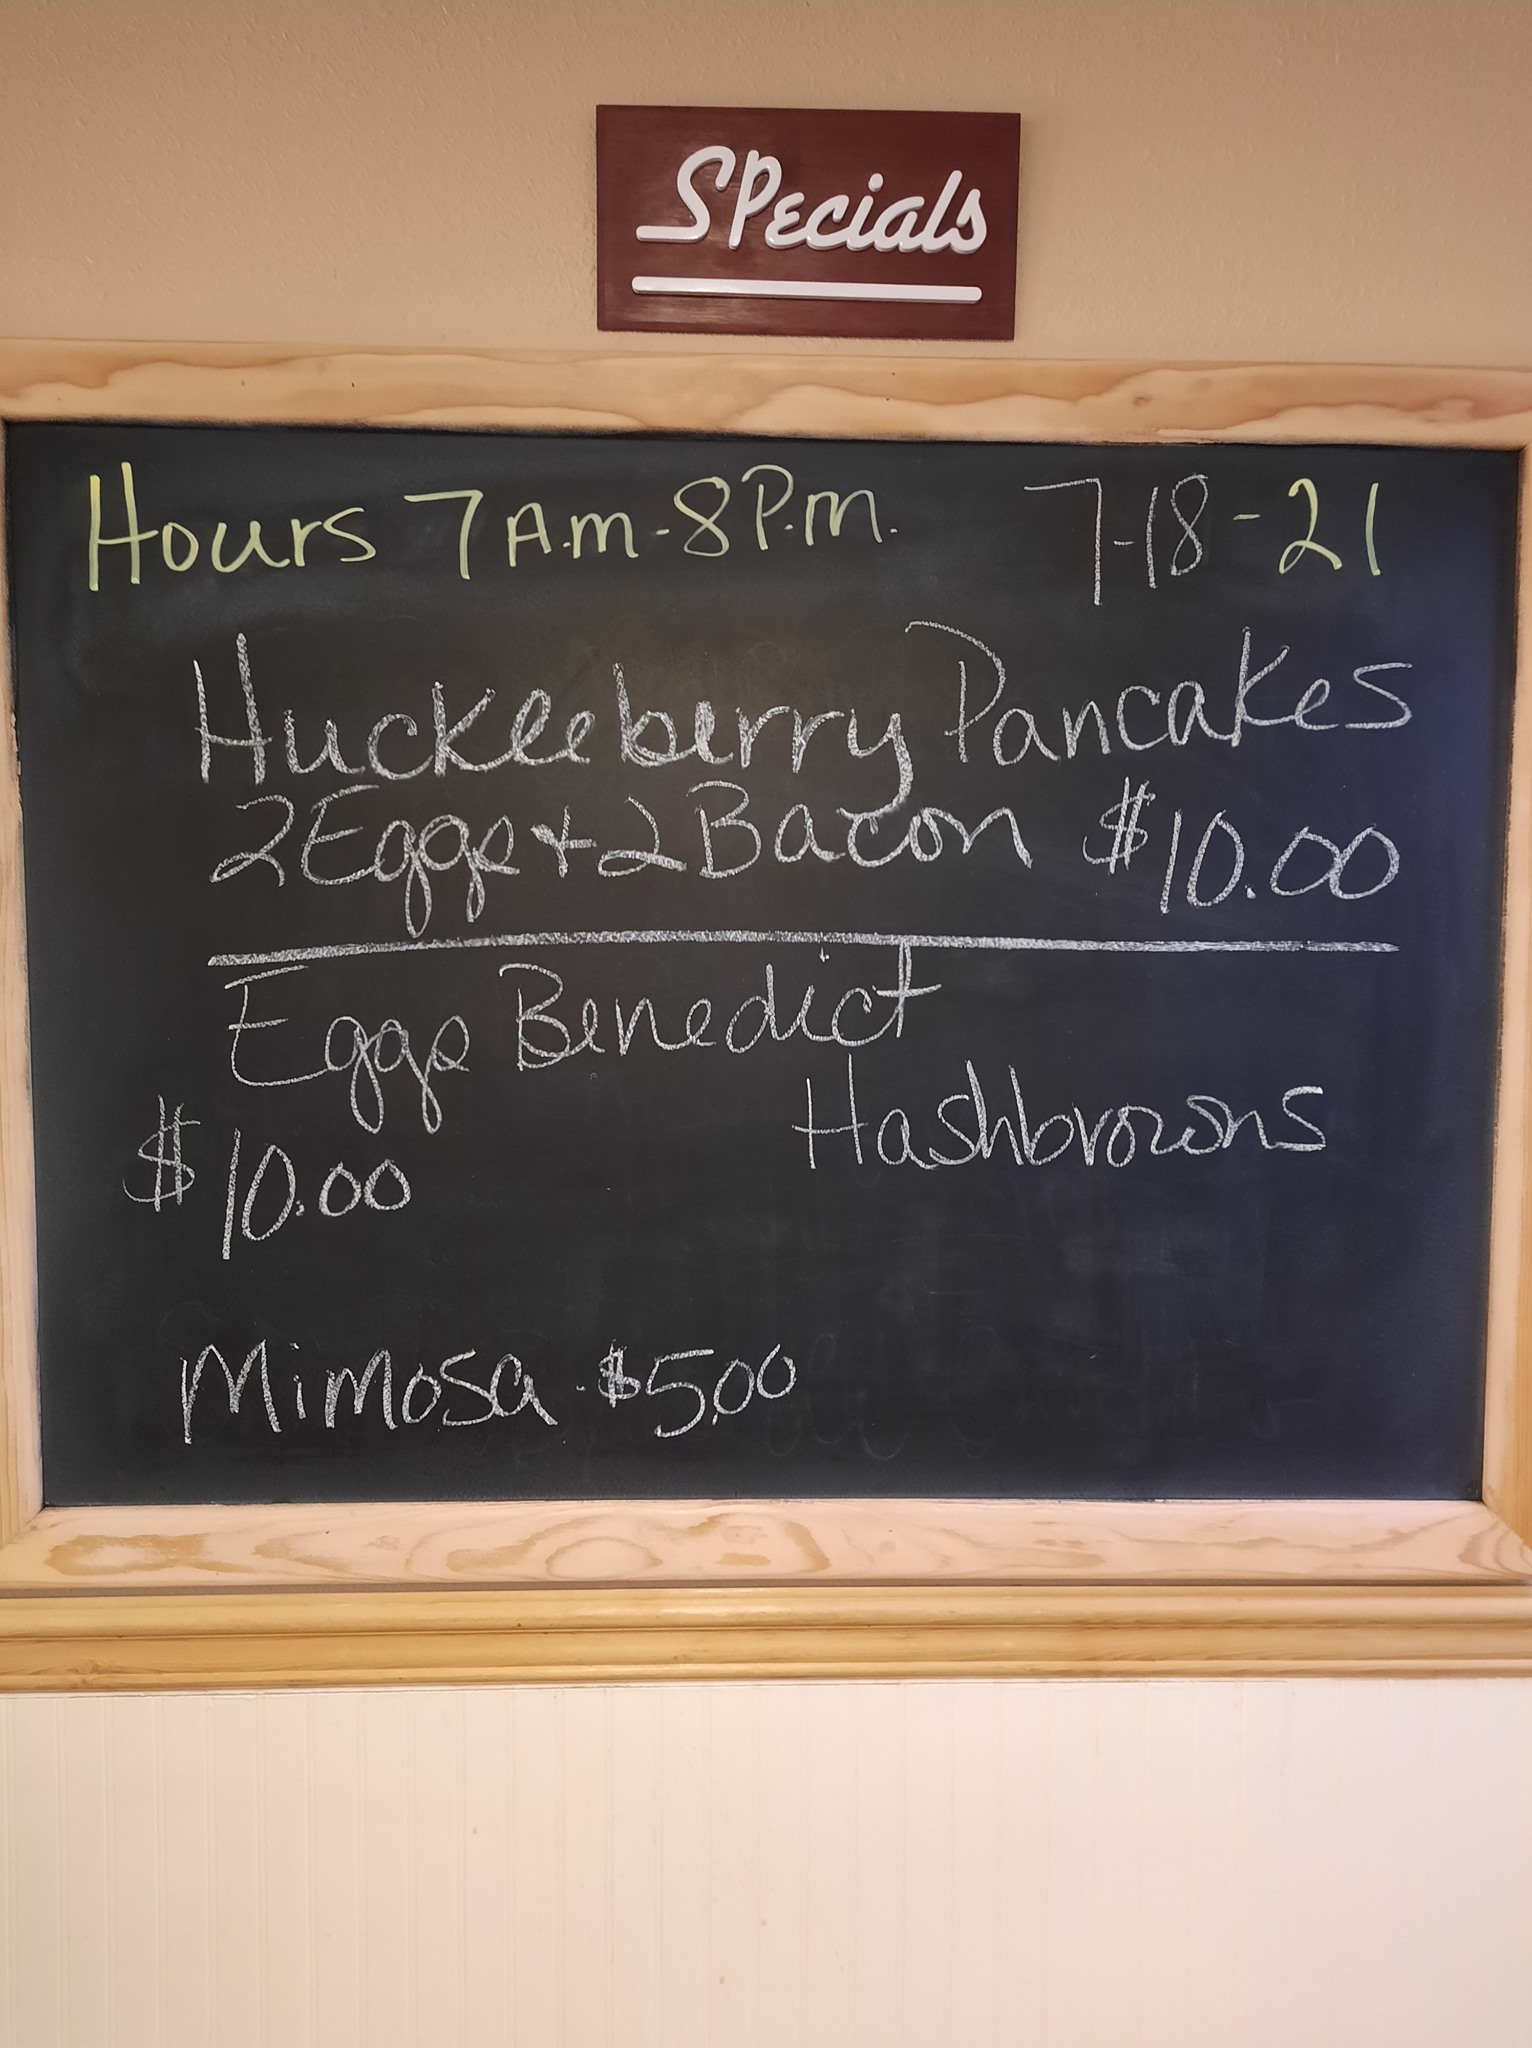 SPecials
Hours 7 A.m-8P.m. 7-18-21
Huckleberry Pancakes
2 Eggs + 2 Bacon $10.00
Eggs Benedict
Hashbrowns
$10.00
Mimosa - $5.00